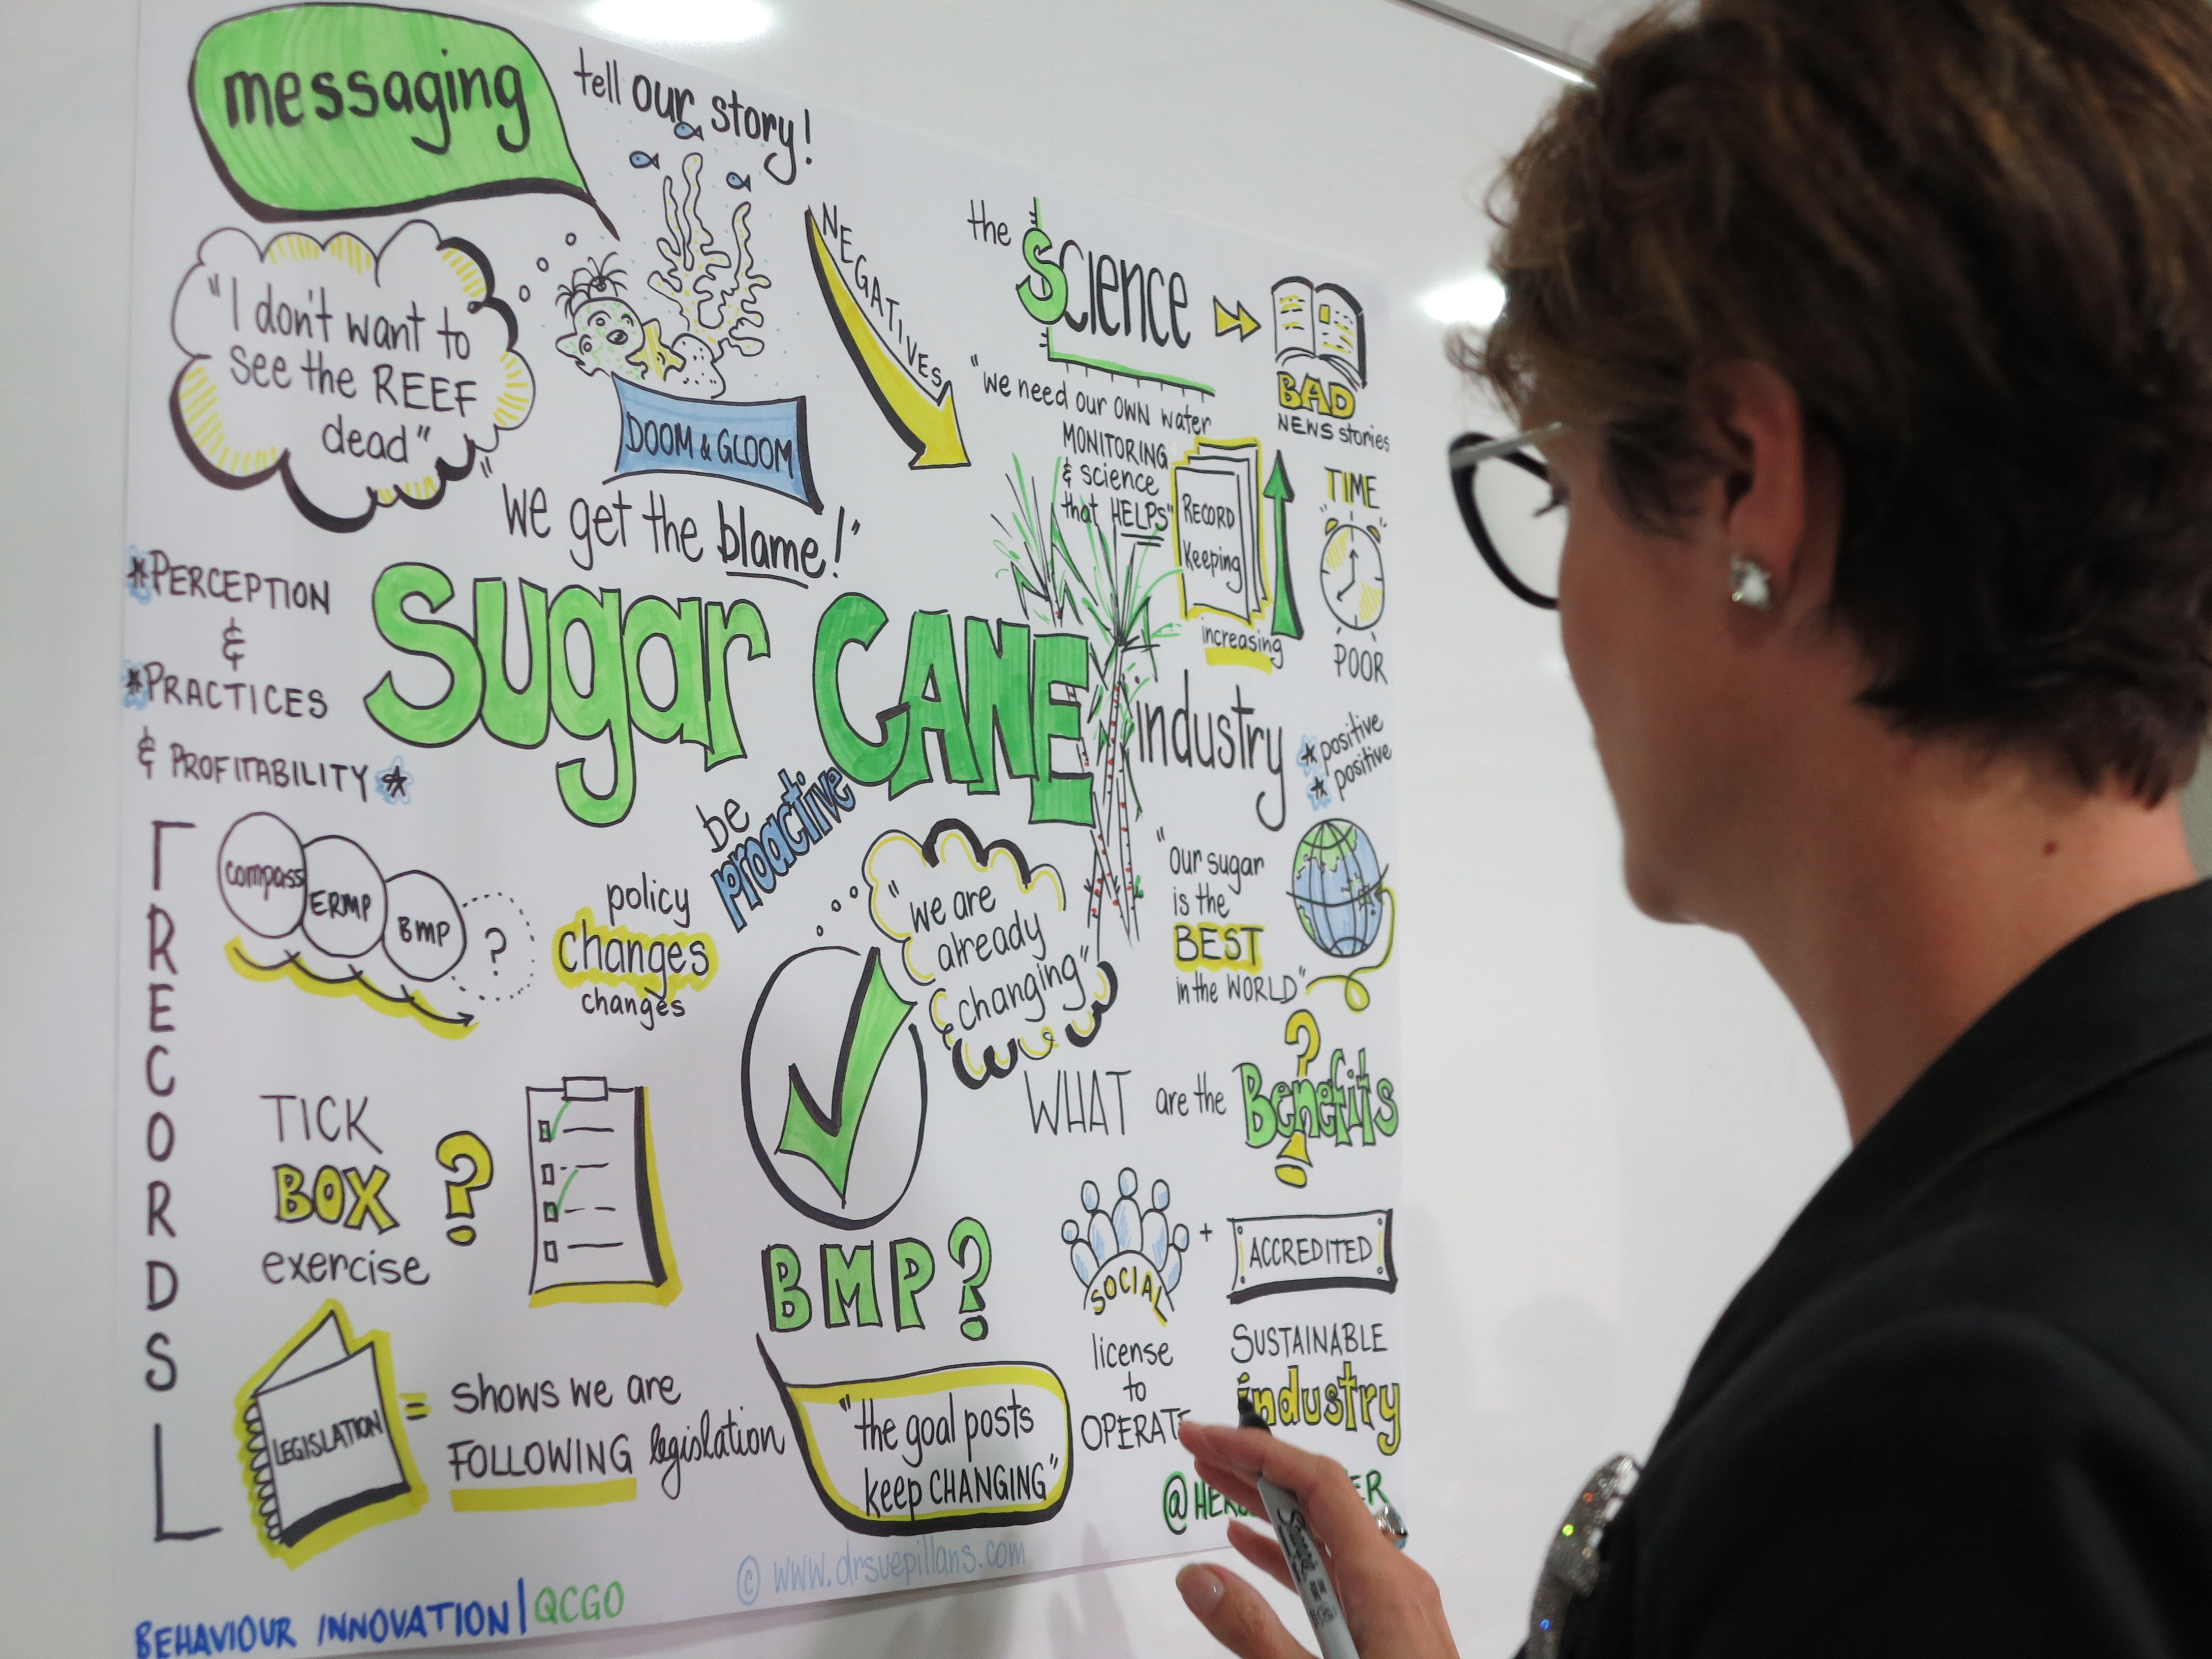 messaging
tell our story!
"I don't want to
see the REEF
dead"
DOOM & GLOOM
"we get the blame!"
NEGATIVES
the Science
BAD
NEWS stories
"we need our OWN water
MONITORING
& science
that HELPS"
RECORD
Keeping
increasing
TIME
POOR
*PERCEPTION
&
*PRACTICES
& PROFITABILITY*
Sugar CANE
industry
*positive
*positive
be
proactive
"we are
already
changing"
"Our sugar
is the
BEST
in the WORLD"
RECORDS
Compass
ERMP
BMP
?
policy
changes
changes
TICK
BOX
exercise
?
BMP?
WHAT are the Benefits
?
SOCIAL
+
ACCREDITED
license
to
OPERATE
SUSTAINABLE
industry
LEGISLATION
=
shows we are
FOLLOWING legislation
"the goal posts
keep CHANGING"
© www.drsuepillans.com
BEHAVIOUR INNOVATION | QCGO
Sharpie